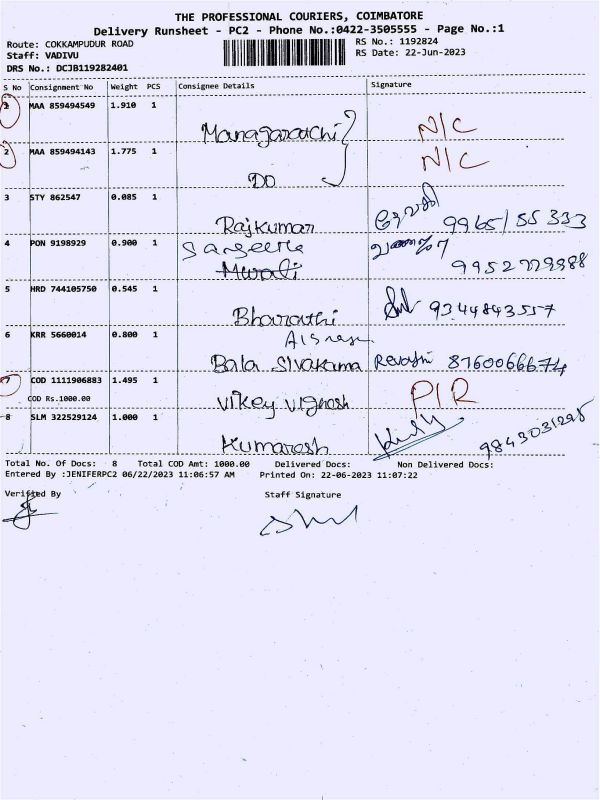 THE PROFESSIONAL COURIERS, COIMBATORE
Delivery Runsheet - PC2 - Phone No.:0422-3505555 - Page No.:1
Route: COKKAMPUDUR ROAD
Staff: VADIVU
DRS No.: DCJB119282401
RS No.: 1192824
RS Date: 22-Jun-2023
S No Consignment No Weight PCS Consignee Details Signature
1 MAA 859494549 1.910 1
N/C
2 MAA 859494143 1.775 1
DO N/C
3 STY 862547 0.085 1
Rajkumar 99651 55 333
4 PON 9198929 0.900 1
Sangeetha
9952779988
5 HRD 744105750 0.545 1
Bharathi 9344843557
6 KRR 5660014 0.800 1
Bala Sivakama Revathi 8760066674
7 COD 1111906883 1.495 1
COD Rs.1000.00
Vikey Vignesh P/R
8 SLM 322529124 1.000 1
Kumaresh 9843031295
Total No. Of Docs: 8 Total COD Amt: 1000.00 Delivered Docs: Non Delivered Docs:
Entered By :JENIFERPC2 06/22/2023 11:06:57 AM Printed On: 22-06-2023 11:07:22
Verified By Staff Signature